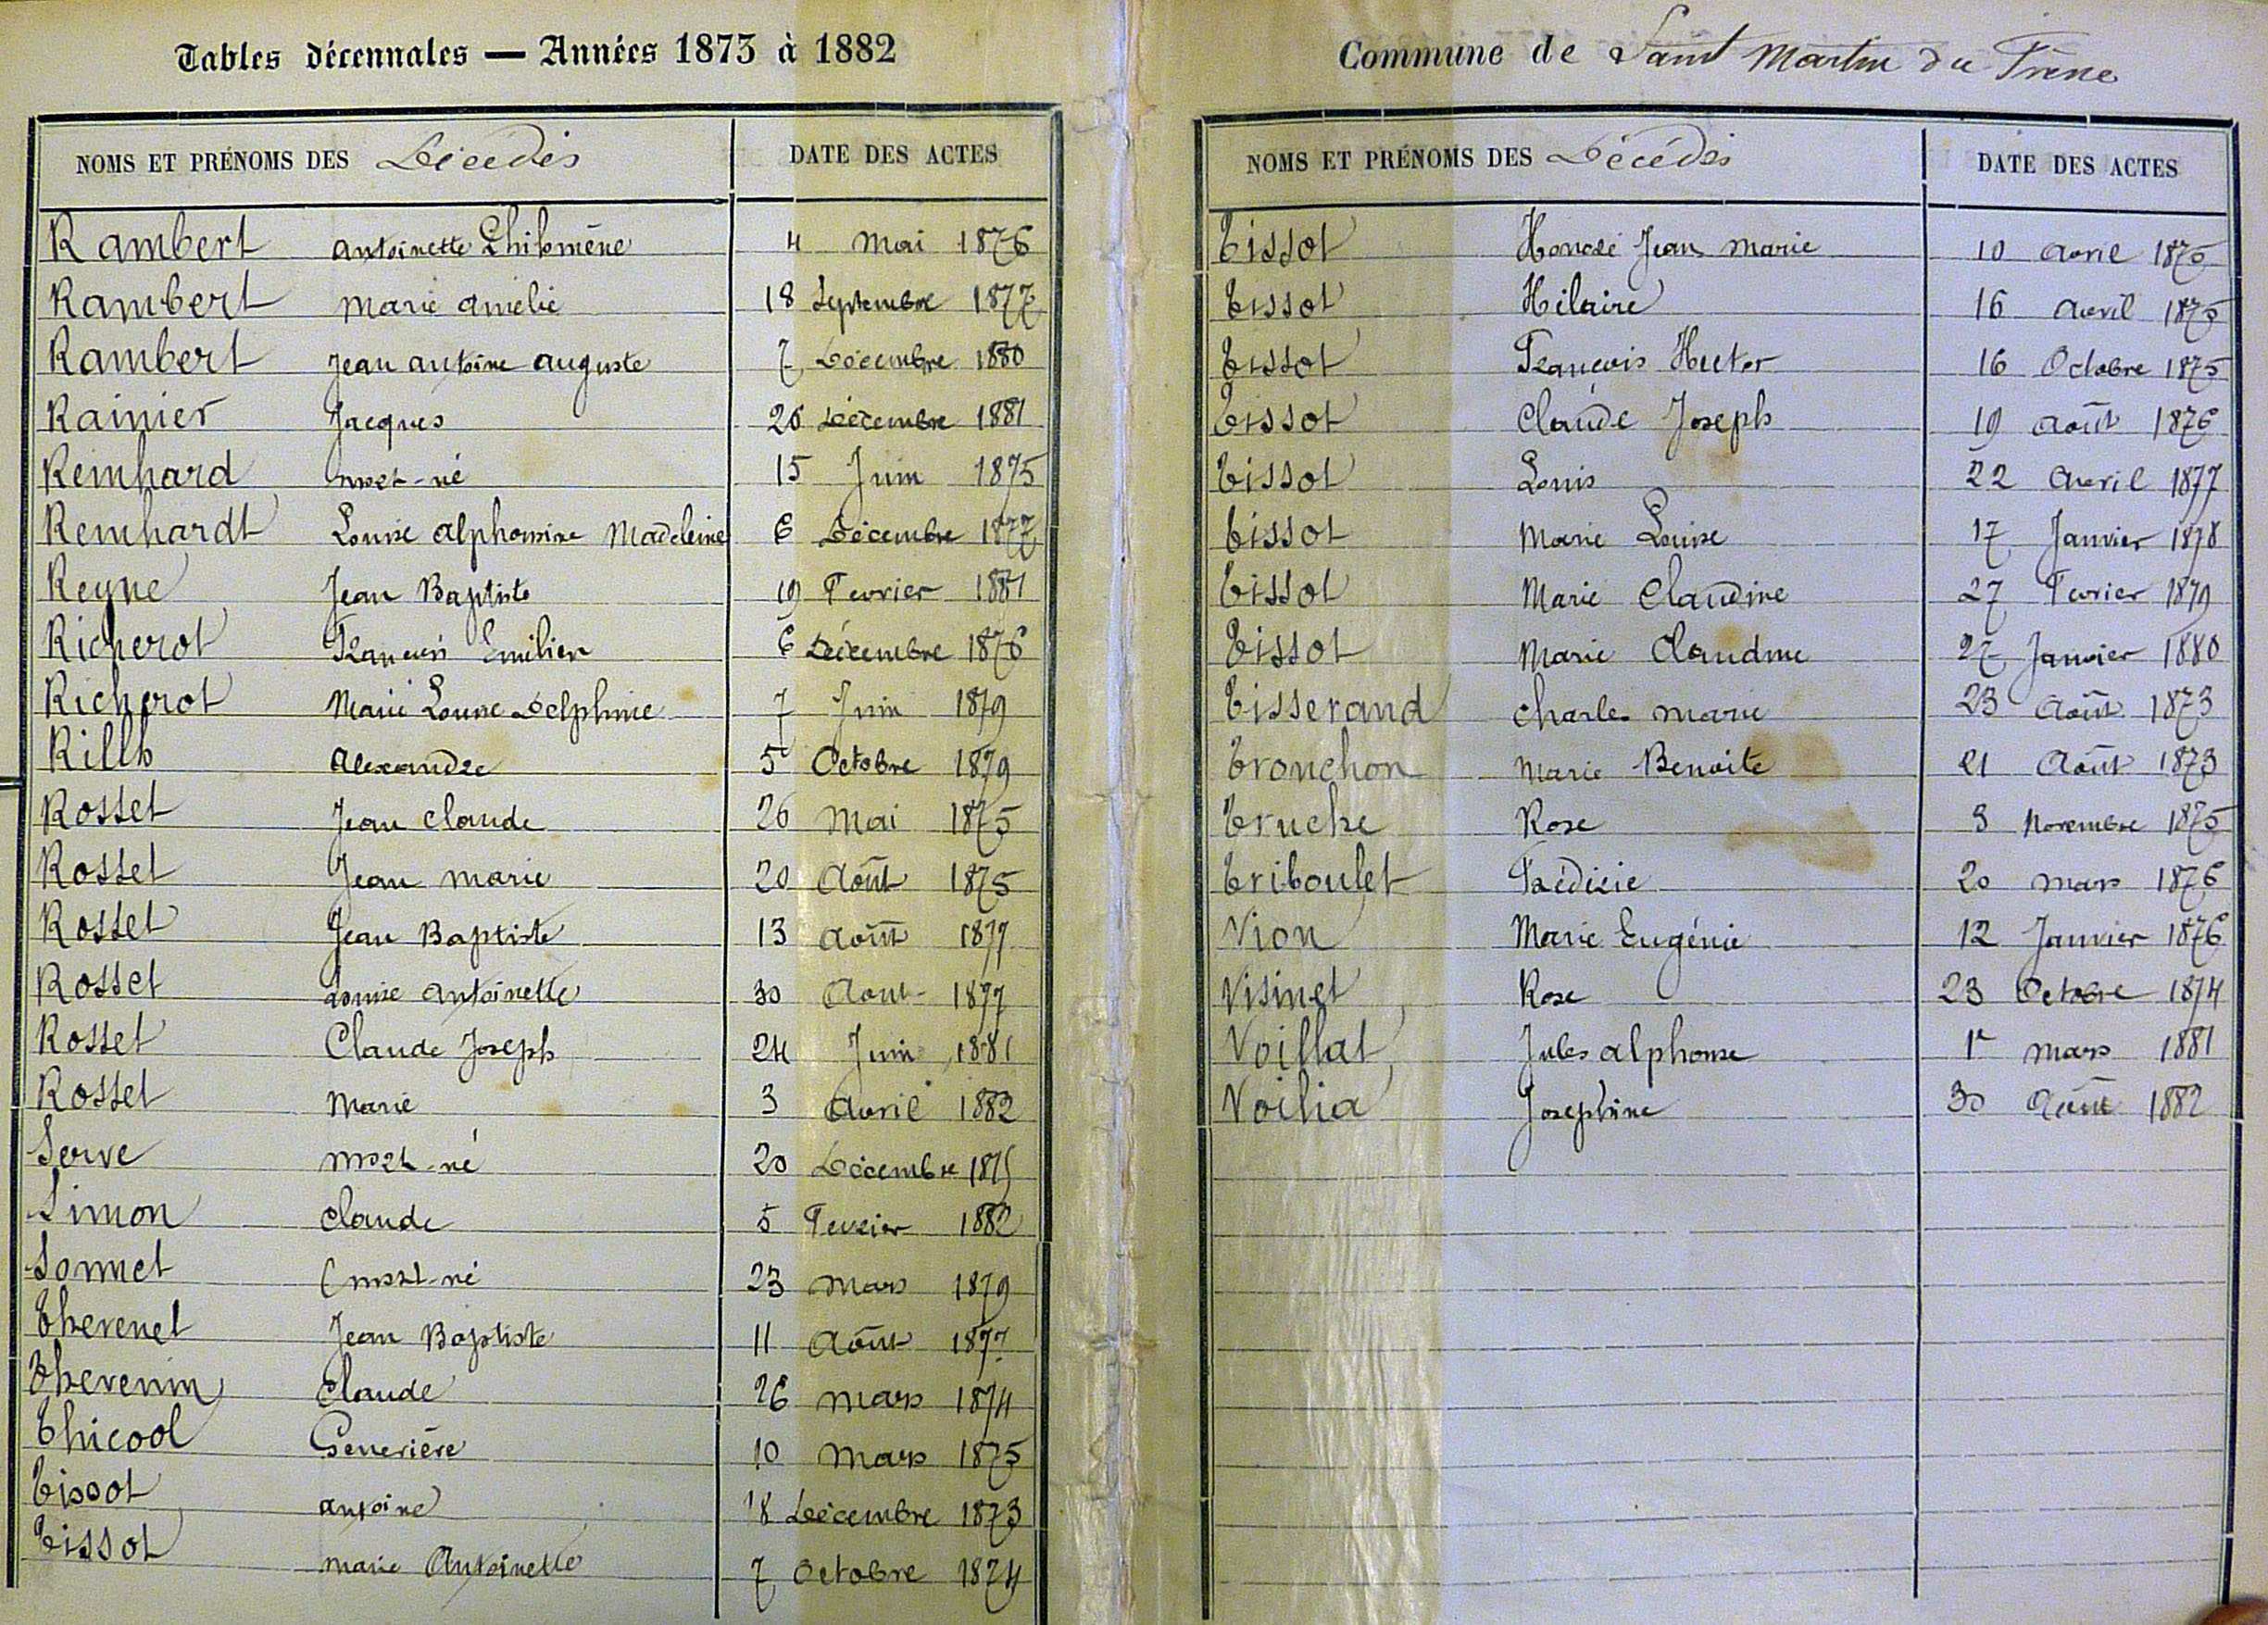 Tables décennales — Années 1873 à 1882
NOMS ET PRÉNOMS DES Décédés DATE DES ACTES
Rambert antoinette Philomène 4 Mai 1876
Rambert Marie amélie 18 Septembre 1877
Rambert Jean antoine auguste 7 Décembre 1880
Rainier Jacques 26 Décembre 1881
Reinhard mort-né 15 Juin 1875
Reinhardt Louise alphonsine Madeleine 6 Décembre 1877
Reyne Jean Baptiste 19 Fevrier 1881
Richerot François Emilien 6 Décembre 1876
Richerot Marie Louise Delphine 7 Juin 1879
Rills alexandre 5 Octobre 1879
Rosset Jean claude 26 Mai 1875
Rosset Jean marie 20 Août 1875
Rosset Jean Baptiste 13 août 1877
Rosset Louise antoinette 30 Aout 1877
Rosset Claude Joseph 24 Juin 1881
Rosset Marie 3 Avril 1882
Serve mort-né 20 Décembre 1875
Simon claude 5 Fevrier 1882
Sonnet (mort-né 23 Mars 1879
Thevenet Jean Baptiste 11 Août 1877
Thevenin Claude 26 Mars 1874
Thicool Geneviève 10 Mars 1875
Tissot antoine 18 Décembre 1873
Tissot marie Antoinette 7 Octobre 1874
Commune de Saint Martin du Frène
NOMS ET PRÉNOMS DES Décédés DATE DES ACTES
Tissot Honoré Jean Marie 10 avril 1875
Tissot Hilaire 16 avril 1875
Tissot François Hector 16 Octobre 1875
Tissot Claude Joseph 19 août 1876
Tissot Louis 22 avril 1877
Tissot Marie Louise 17 Janvier 1878
Tissot Marie Claudine 27 Fevrier 1879
Tissot Marie Claudine 27 Janvier 1880
Tisserand charles marie 23 Août 1873
Tronchon Marie Benoite 21 Août 1873
Truche Rose 3 Novembre 1875
Triboulet Frédéric 20 mars 1876
Vion Marie Eugénie 12 Janvier 1876
Visinet Rose 23 Octobre 1874
Voillat Jules alphonse 1r mars 1881
Voilia Josephine 30 Août 1882